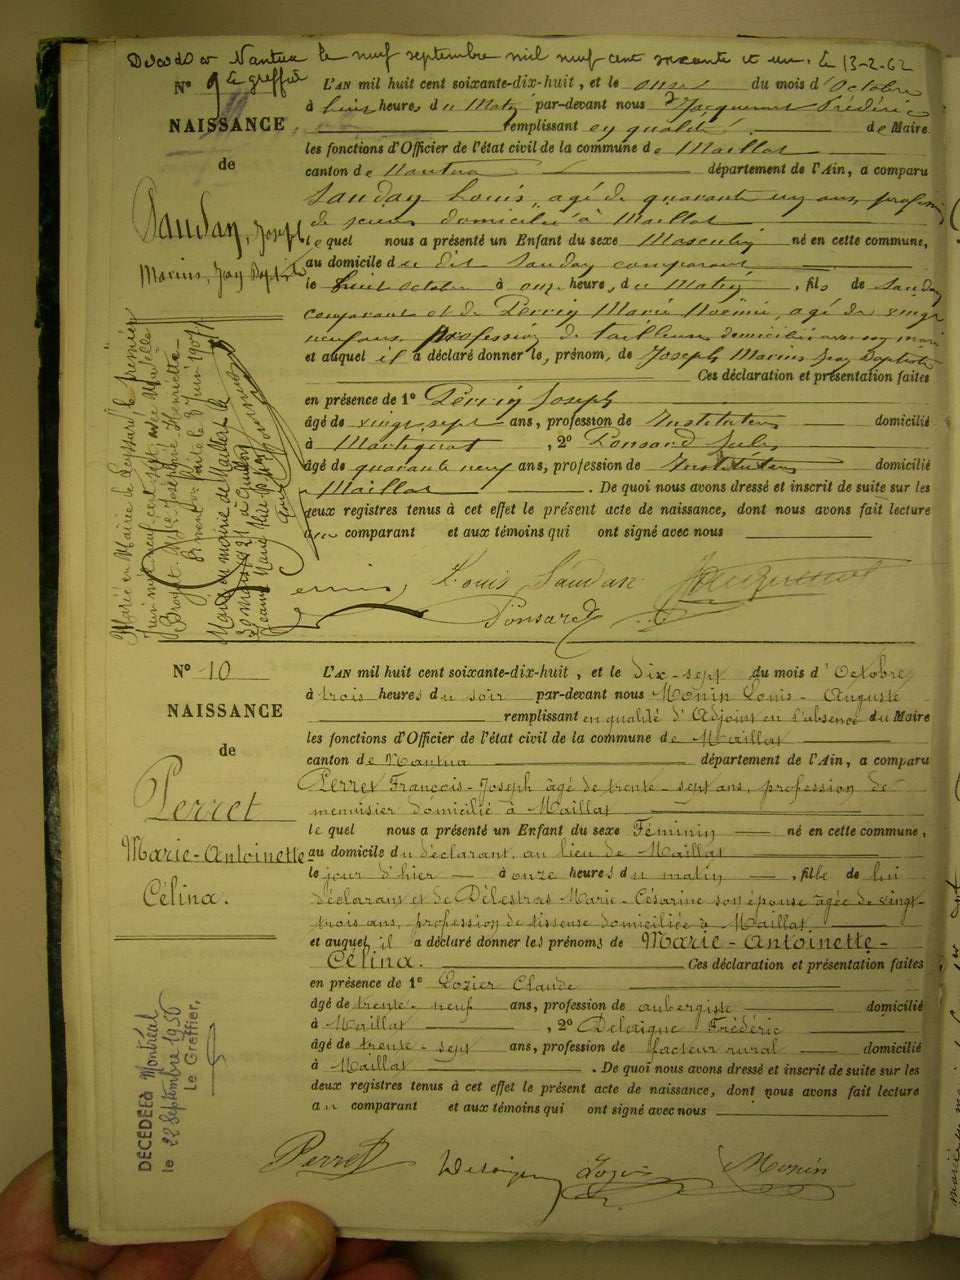 Décédé à Nantua le neuf septembre mil neuf cent soixante et un. le 13-2-62
le greffier
N° 9
NAISSANCE
de
Saudan, Joseph
Marius, Jean Baptiste
L'AN mil huit cent soixante-dix-huit, et le onze du mois d'Octobre
à huit heures du Matin par-devant nous Jacquemet Frédéric
remplissant en qualité de Maire
les fonctions d'Officier de l'état civil de la commune de Maillat
canton de Nantua département de l'Ain, a comparu
Saudan Louis, agé de quarante un ans, profession
de scieur domicilié à Maillat
lequel nous a présenté un Enfant du sexe Masculin né en cette commune,
au domicile du dit Saudan comparant
le huit Octobre à onze heure, du Matin, fils de Saudan
comparant et de Perrin Marie Noëmie, agé de vingt
neuf ans, profession de tailleuse domiciliée avec son mari
et auquel il a déclaré donner le, prénom, de Joseph Marius Jean Baptiste
Ces déclaration et présentation faites
en présence de 1° Perrin Joseph
âgé de vingt sept ans, profession de Instituteur domicilié
à Martignat, 2° Ponsard Jules
âgé de quarante neuf ans, profession de Instituteur domicilié
à Maillat. De quoi nous avons dressé et inscrit de suite sur les
deux registres tenus à cet effet le présent acte de naissance, dont nous avons fait lecture
au comparant et aux témoins qui ont signé avec nous
Marié en Mairie de Leyssard le premier
Juin mil neuf cent sept avec Mademoiselle
Broyat Josephine Henriette
faite le 8 Juin 1907
Marié en mairie de Maillat le
Jeanne Marie
Perrin Louis Saudan
Ponsard
N° 10
NAISSANCE
de
Perret
Marie-Antoinette
Célina.
L'AN mil huit cent soixante-dix-huit, et le dix-sept du mois d'Octobre
à trois heures du soir par-devant nous Monin Louis-Auguste
remplissant en qualité d'Adjoint en l'absence du Maire
les fonctions d'Officier de l'état civil de la commune de Maillat
canton de Nantua département de l'Ain, a comparu
Perret François-Joseph âgé de trente-sept ans, profession de
menuisier domicilié à Maillat
lequel nous a présenté un Enfant du sexe Féminin né en cette commune,
au domicile du déclarant, au lieu de Maillat
le jour d'hier à onze heures du matin, fille de lui
déclarant et de Délestras Marie-Césarine son épouse âgée de vingt-
trois ans, profession de tisseuse domiciliée à Maillat
et auquel il a déclaré donner les prénoms de Marie-Antoinette-
Célina. Ces déclaration et présentation faites
en présence de 1° Lozier Claude
âgé de trente-neuf ans, profession de aubergiste domicilié
à Maillat, 2° Delaigue Frédéric
âgé de trente-sept ans, profession de facteur rural domicilié
à Maillat. De quoi nous avons dressé et inscrit de suite sur les
deux registres tenus à cet effet le présent acte de naissance, dont nous avons fait lecture
au comparant et aux témoins qui ont signé avec nous
DÉCÉDÉE à Montréal
le 22 Septembre 1956
Le Greffier,
Perret Delaigue Lozier Monin